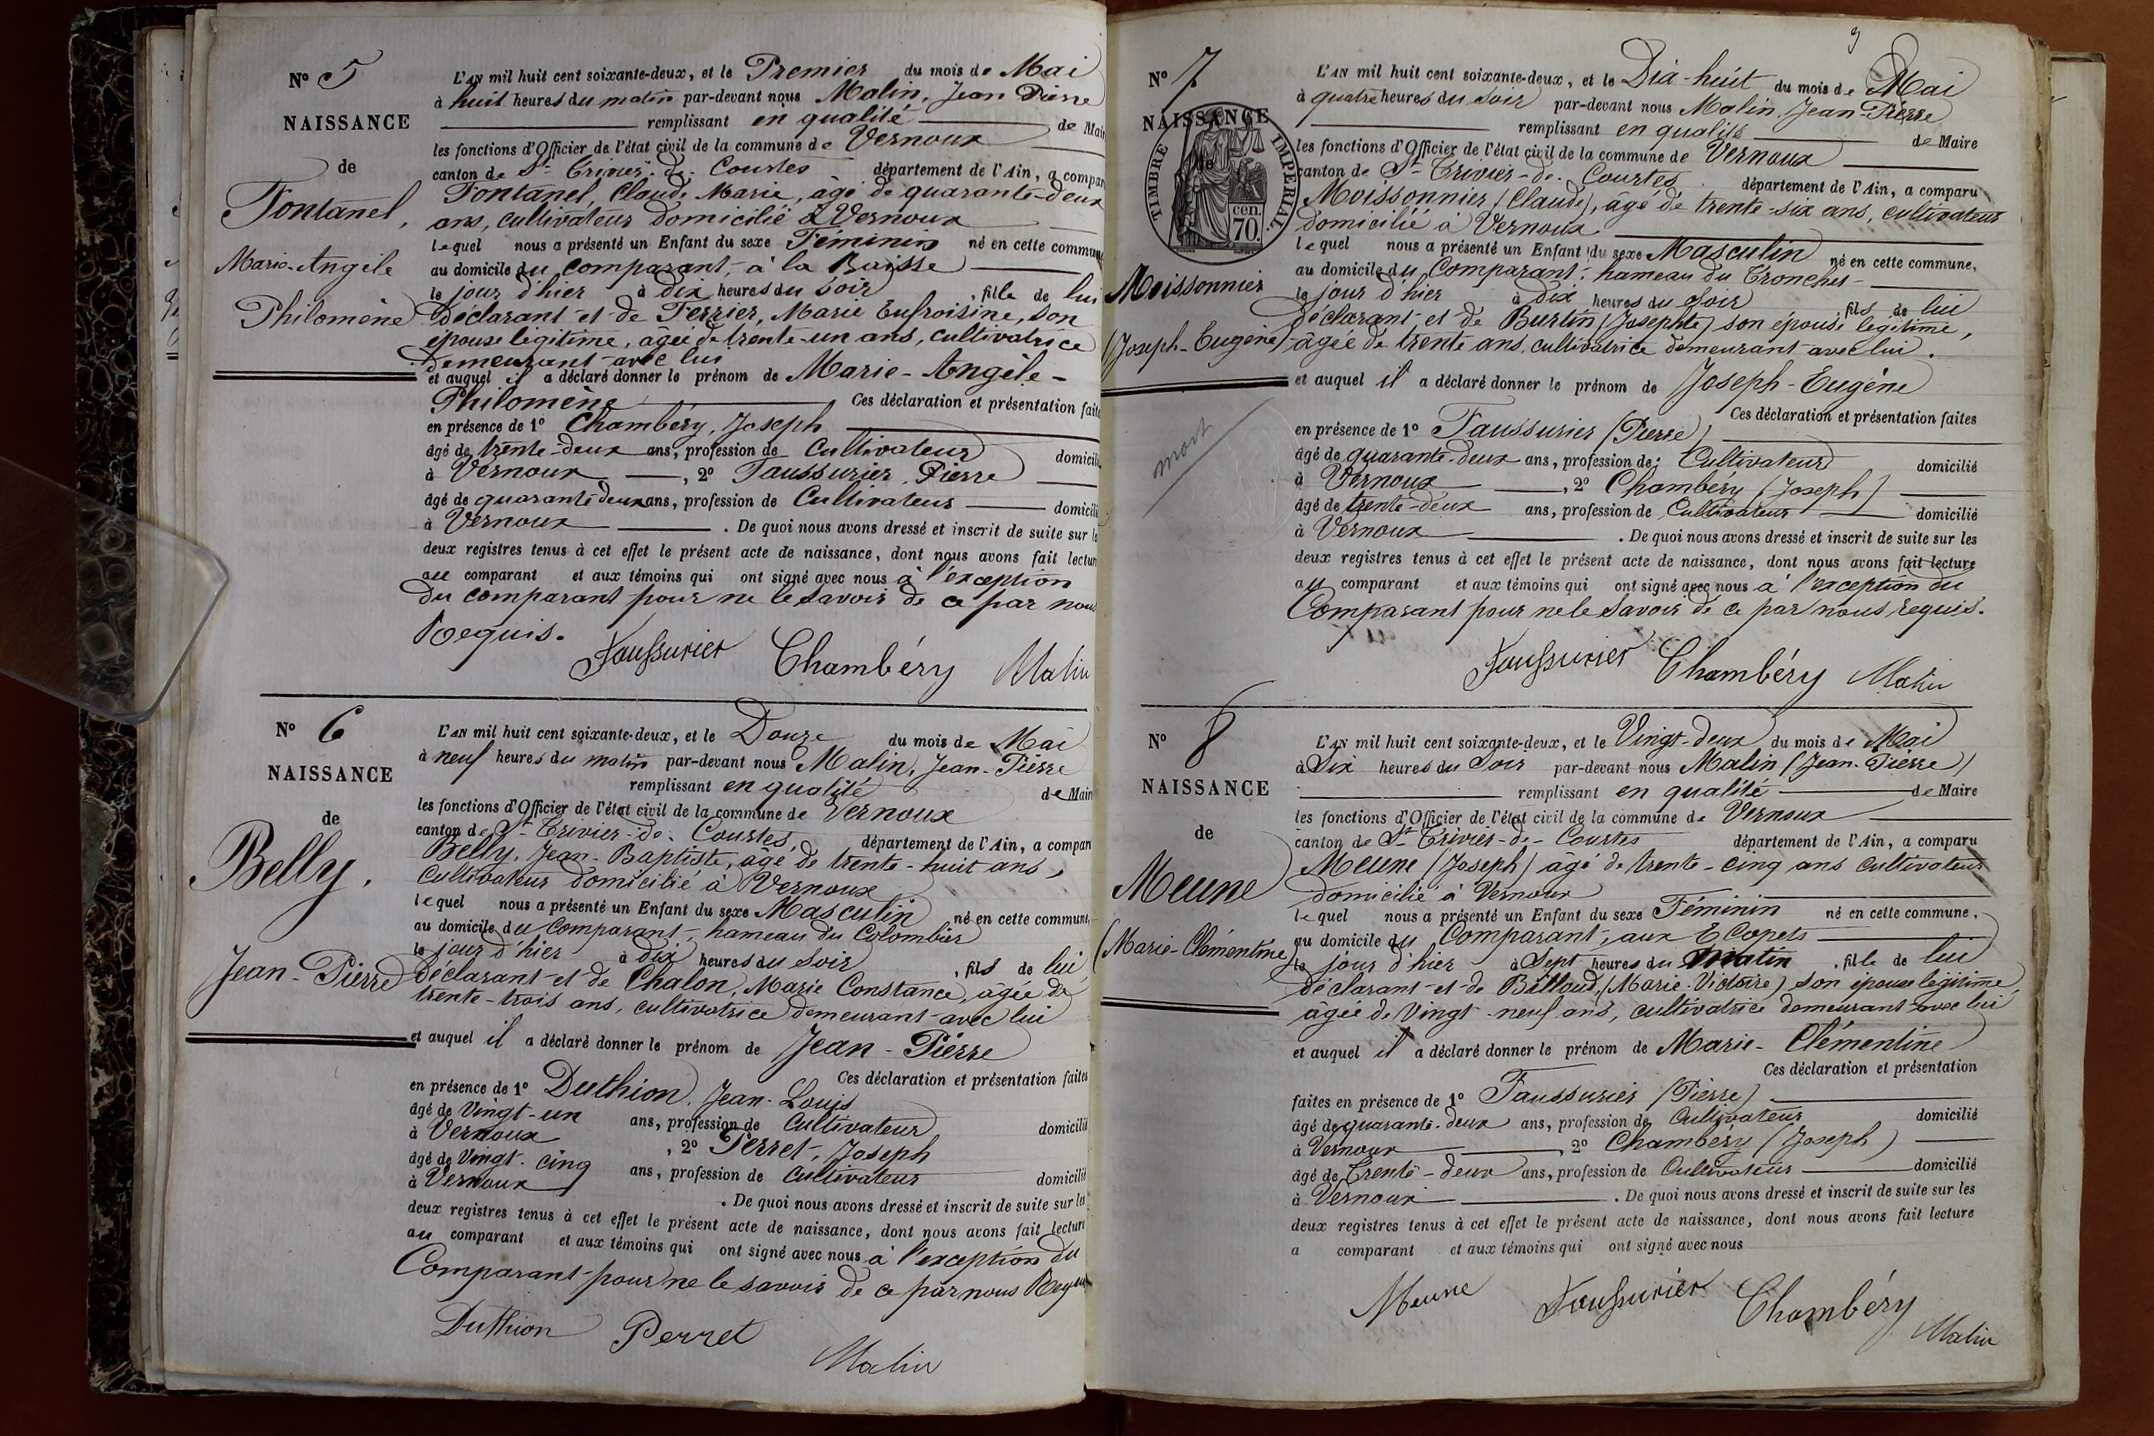 N° 5
NAISSANCE
de
Fontanel,
Marie-Angèle
Philomène
L'AN mil huit cent soixante-deux, et le Premier du mois de Mai
à huit heures du matin par-devant nous Malin, Jean Pierre
remplissant en qualité de Mair
les fonctions d'Officier de l'état civil de la commune de Vernoux
canton de St Trivier-de-Courtes département de l'Ain, a compar
Fontanel, Claude Marie, âgé de quarante-deux
ans, cultivateur domicilié à Vernoux
lequel nous a présenté un Enfant du sexe Féminin né en cette commune
au domicile du comparant, à la Baisse
le jour d'hier à dix heures du soir, fille de lui
déclarant et de Ferrier, Marie Eufroisine, son
épouse légitime, âgée de trente-un ans, cultivatrice
demeurant avec lui
et auquel il a déclaré donner le prénom de Marie-Angèle-
Philomène Ces déclaration et présentation faites
en présence de 1° Chambéry, Joseph
âgé de trente-deux ans, profession de Cultivateur domicilié
à Vernoux, 2° Faussurier, Pierre
âgé de quarante deux ans, profession de Cultivateur domicilié
à Vernoux. De quoi nous avons dressé et inscrit de suite sur le
deux registres tenus à cet effet le présent acte de naissance, dont nous avons fait lectur
au comparant et aux témoins qui ont signé avec nous à l'exception
du comparant pour ne le savoir de ce par nous
Requis.
Faussurier Chambéry Malin
N° 6
NAISSANCE
de
Belly,
Jean-Pierre
L'AN mil huit cent soixante-deux, et le Douze du mois de Mai
à neuf heures du matin par-devant nous Malin, Jean-Pierre
remplissant en qualité de Mair
les fonctions d'Officier de l'état civil de la commune de Vernoux
canton de St Trivier-de-Courtes, département de l'Ain, a compar
Belly, Jean-Baptiste, âgé de trente-huit ans,
cultivateur domicilié à Vernoux
lequel nous a présenté un Enfant du sexe Masculin né en cette commune,
au domicile du Comparant, hameau du Colombier
le jour d'hier à dix heures du soir, fils de lui
déclarant et de Chalon, Marie Constance, âgée de
trente-trois ans, cultivatrice demeurant avec lui
et auquel il a déclaré donner le prénom de Jean-Pierre
Ces déclaration et présentation faites
en présence de 1° Duthion, Jean-Louis
âgé de Vingt-un ans, profession de Cultivateur domicilié
à Vernoux, 2° Perret, Joseph
âgé de Vingt-cinq ans, profession de Cultivateur domicilié
à Vernoux. De quoi nous avons dressé et inscrit de suite sur les
deux registres tenus à cet effet le présent acte de naissance, dont nous avons fait lecture
au comparant et aux témoins qui ont signé avec nous à l'exception du
Comparant pour ne le savoir de ce par nous Requis
Duthion Perret
Malin
9
N° 7
NAISSANCE
de
TIMBRE IMPERIAL.
70 cen.
Moissonnier
(Joseph-Eugène)
mort
L'AN mil huit cent soixante-deux, et le Dix-huit du mois de Mai
à quatre heures du soir par-devant nous Malin, Jean-Pierre
remplissant en qualité de Maire
les fonctions d'Officier de l'état civil de la commune de Vernoux
canton de St Trivier-de-Courtes département de l'Ain, a comparu
Moissonnier (Claude), âgé de trente-six ans, cultivateur
domicilié à Vernoux
lequel nous a présenté un Enfant du sexe Masculin né en cette commune,
au domicile du Comparant, hameau du Tronchet
le jour d'hier à dix heures du soir, fils de lui
déclarant et de Burtin (Josephte) son épouse légitime,
âgée de trente ans, cultivatrice demeurant avec lui.
et auquel il a déclaré donner le prénom de Joseph-Eugène
Ces déclaration et présentation faites
en présence de 1° Faussurier (Pierre)
âgé de quarante-deux ans, profession de Cultivateur domicilié
à Vernoux, 2° Chambéry (Joseph)
âgé de trente-deux ans, profession de Cultivateur domicilié
à Vernoux. De quoi nous avons dressé et inscrit de suite sur les
deux registres tenus à cet effet le présent acte de naissance, dont nous avons fait lecture
au comparant et aux témoins qui ont signé avec nous à l'exception du
Comparant pour ne le savoir de ce par nous requis.
Faussurier Chambéry Malin
N° 8
NAISSANCE
de
Meune
(Marie-Clémentine)
L'AN mil huit cent soixante-deux, et le Vingt-deux du mois de Mai
à Six heures du Soir par-devant nous Malin (Jean-Pierre)
remplissant en qualité de Maire
les fonctions d'Officier de l'état civil de la commune de Vernoux
canton de St Trivier-de-Courtes département de l'Ain, a comparu
Meune (Joseph) âgé de trente-cinq ans cultivateur
domicilié à Vernoux
lequel nous a présenté un Enfant du sexe Féminin né en cette commune,
au domicile du Comparant, aux Ecopets
le jour d'hier à Sept heures du matin, fille de lui
déclarant et de Billoud (Marie-Victoire) son épouse légitime,
âgée de Vingt-neuf ans, cultivatrice demeurant avec lui
et auquel il a déclaré donner le prénom de Marie-Clémentine
Ces déclaration et présentation
faites en présence de 1° Faussurier (Pierre)
âgé de quarante-deux ans, profession de Cultivateur domicilié
à Vernoux, 2° Chambéry (Joseph)
âgé de Trente-deux ans, profession de Cultivateur domicilié
à Vernoux. De quoi nous avons dressé et inscrit de suite sur les
deux registres tenus à cet effet le présent acte de naissance, dont nous avons fait lecture
a comparant et aux témoins qui ont signé avec nous
Meune Faussurier Chambéry
Malin